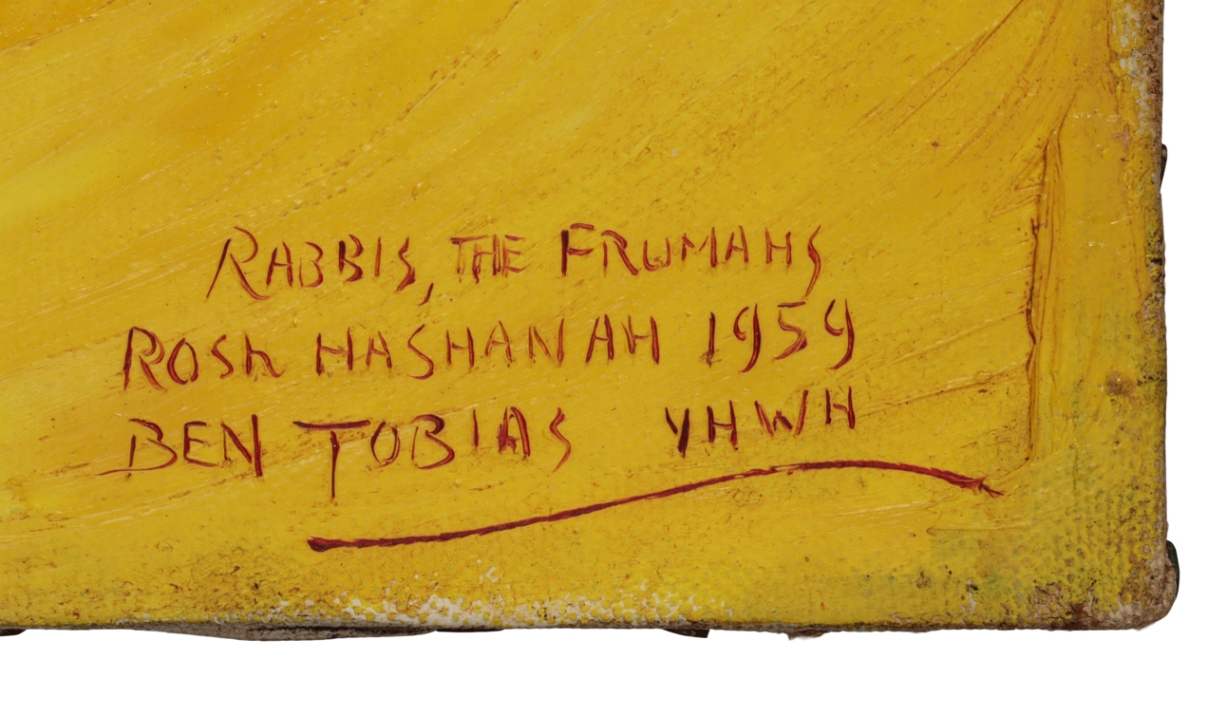 RABBIS, THE FRUMAHS
ROSh HASHANAH 1959
BEN TOBIAS YHWH